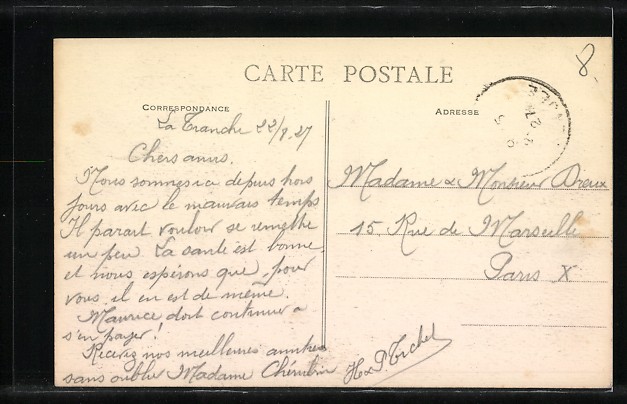 8.
CARTE POSTALE
CORRESPONDANCE
ADRESSE
La Tranche 22/8.27
Chers amis.
Nous sommes ici depuis trois
jours avec le mauvais temps
Il parait vouloir se remettre
un peu. La santé est bonne
et nous espérons que, pour
vous, il en est de même.
Maurice doit continuer à
s'en payer!
Recevez nos meilleures amitiés
sans oublier Madame Chérubin
H & P
Madame & Monsieur Dreux
15. Rue de Marseille
Paris X